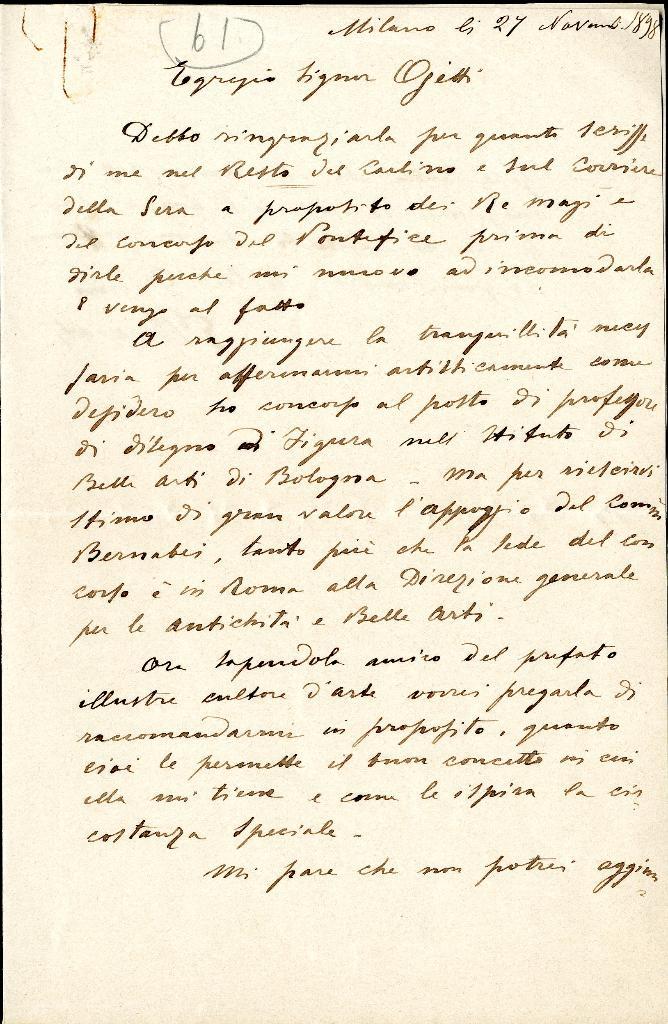 61
Milano li 27 Novemb. 1898
Egregio Signor Ojetti
Debbo ringraziarla per quanto scrisse
di me nel Resto del Carlino e sul Corriere
della Sera a proposito dei Re magi e
del concorso del Pontefice prima di
dirle perché mi muovo ad incomodarla
e vengo al fatto
A raggiungere la tranquillità neces
saria per affermarmi artisticamente come
desidero ho concorso al posto di professore
di disegno di Figura nell' Istituto di
Belle Arti di Bologna - Ma per riescirvi
stimo di gran valore l'appoggio del Comm
Bernabei, tanto più che la sede del con
corso è in Roma alla Direzione generale
per le Antichità e Belle Arti -
Ora sapendola amico del prefato
illustre cultore d'arte vorrei pregarla di
raccomandarmi in proposito, quanto
cioè le permette il buon concetto in cui
ella mi tiene e come le ispira la cir=
costanza speciale -
Mi pare che non potrei aggiun=